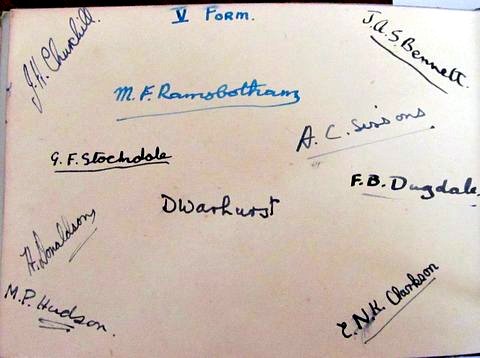 V FORM.
J.H. Churchill.
J.A.S. Bennett.
M.F. Ramsbotham
A.C. Sissons
G.F. Stockdale
F.B. Dugdale.
DWarhurst
H. Donaldson,
M.P. Hudson.
E.N.K. Clarkson